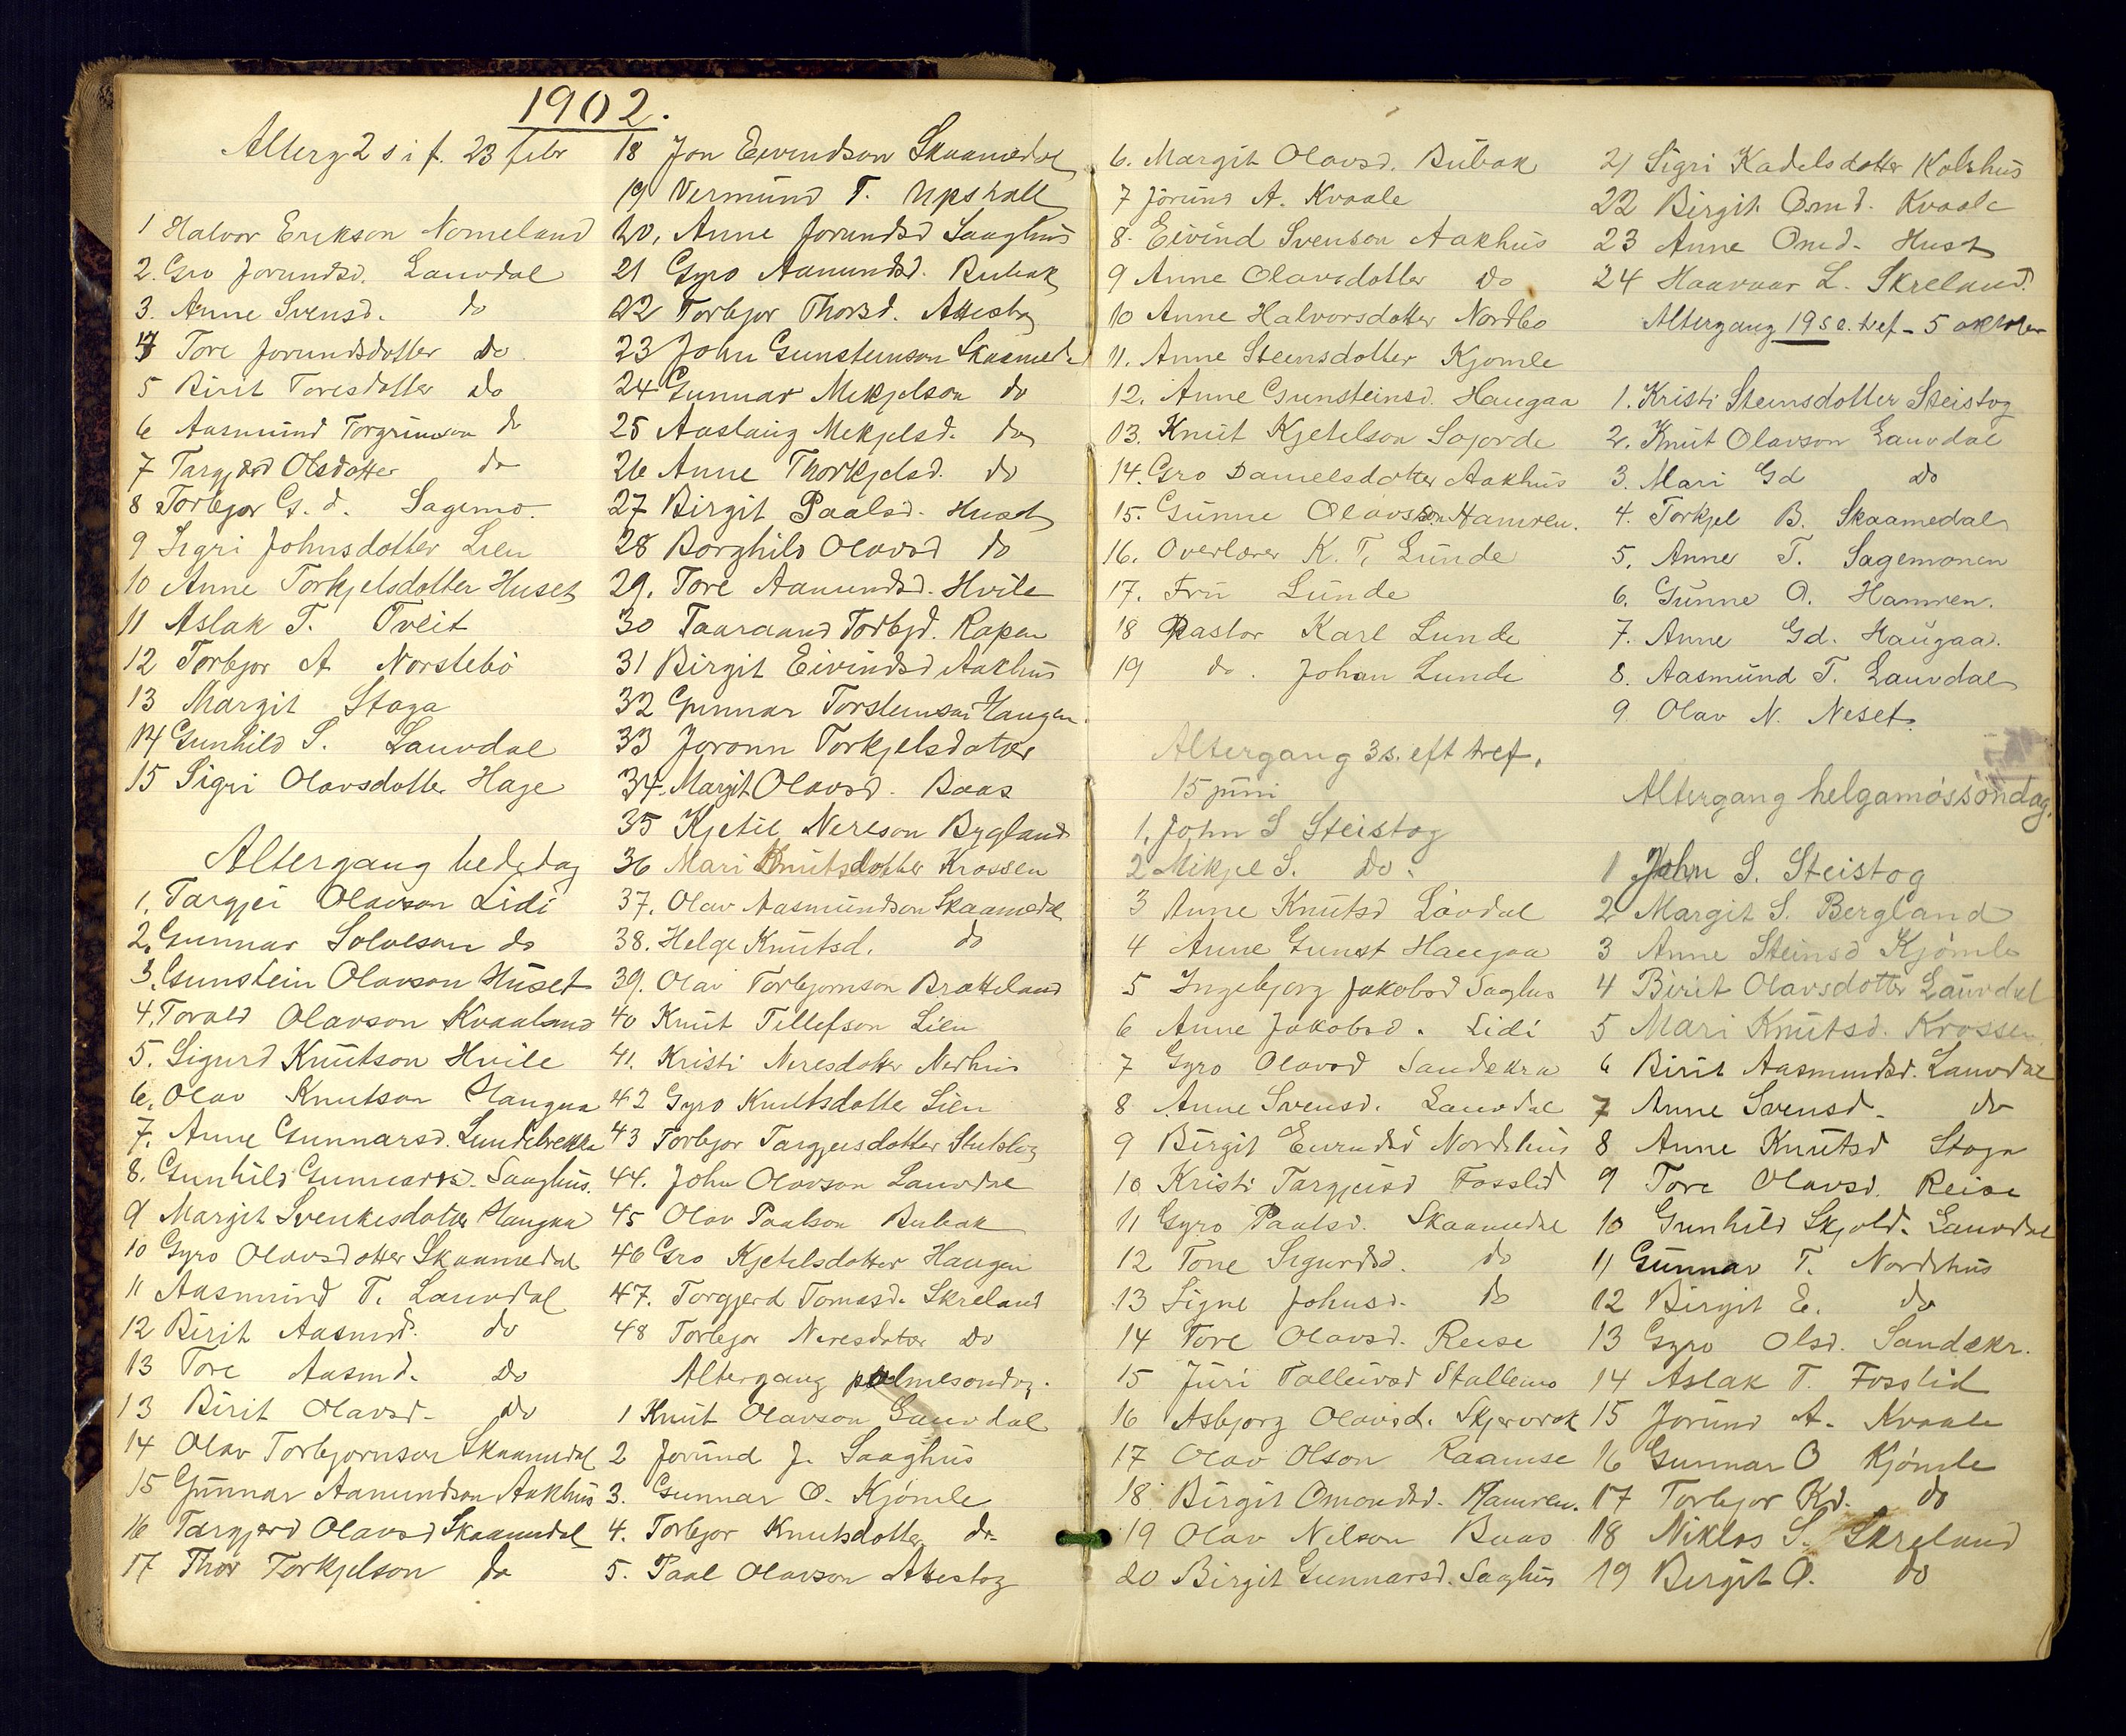 1902.
Alterg 2 s i f. 23 febr
1 Halvor Erikson Nomeland
2. Gro Jorundsd. Lauvdal
3. Anne Svensd. do
4 Tore Jorundsdotter do
5 Birit Toresdotter do
6 Aasmund Torgrimson do
7 Targjærd Olsdotter do
8 Torbjor G. d. Sagemo.
9 Sigri Johnsdotter Lien
10 Anne Torkjelsdotter Huset
11 Aslak T. Tveit
12 Torbjor A Norstebö
13 Margit Stoga
14 Gunhild S. Lauvdal
15 Sigri Olavsdotter Hage
Altergang bededag
1. Targjei Olavson Lidi
2. Gunnar Solveson do
3. Gunstein Olavson Huset
4. Torald Olavson Kvaaland
5. Sigurd Knutson Hvile
6. Olav Knutson Haugaa
7. Anne Gunnarsd. Lundebrekka
8. Gunhild Gunnarsd. Saaghus.
9 Margit Svenkesdotter Haugaa
10 Gyro Olavsdotter Skaamedal
11 Aasmund T. Lauvdal
12 Birit Aasmd. do
13 Tore Aasmd. do
13 Birit Olavsd. do
14 Olav Torbjornson Skaamedal
15 Gunnar Aamundson Aakhus
16 Targjerd Olavsd Skaamedal
17 Thor Torkjelson do
18 Jon Eivendson Skaamedal
19 Vermund T. Upstall
20. Anne Jorundsd Saaghus
21 Gyro Aamundsd. Bubak
22 Torbjor Thorsd. Attestog
23 John Gunsteinson Skaamedal
24 Gunnar Mekjelson do
25 Aaslaug Mekjelsd. do
26 Anne Thorkjelsd. do
27 Birgit Paalsd. Huset
28 Borghild Olavsd do
29. Tore Aamundsd. Hvile
30 Taaraand Torbjd. Rapen
31 Birgit Eivindsd Aakhus
32 Gunnar Torsteinson Haugen.
33 Joronn Torkjelsdotter
34. Margit Olavsd. Baas
35 Kjetil Nerison Bygland
36 Mari Knutsdotter Krossen
37. Olav Aasmundson Skaamedal
38. Helge Knutsd. do
39. Olav Torbjornson Bratteland
40 Knut Tellefson Lien
41. Kristi Neresdotter Nerhus
42 Gyro Knutsdotter Lien
43 Torbjor Targjeisdotter Stutstog
44. John Olavson Lauvdal
45 Olav Paalson Bubak
46 Gro Kjetelsdotter Haugen
47. Torgjerd Tomasd. Skreland
48 Torbjor Neresdotter do
Altergang palmesondag.
1 Knut Olavson Lauvdal
2 Jorund J. Saaghus
3. Gunnar O. Kjömle
4. Torbjor Knutsdotter do
5. Paal Olavson Attestog
6. Margit Olavsd. Bubak
7 Jorund A. Kvaale
8. Eivind Svenson Aakhus
9 Anne Olavsdotter do
10 Anne Halvorsdotter Nordbo
11. Anne Steinsdotter Kjomle
12. Anne Gunsteinsd. Haugaa
13. Knut Kjetelson Lajorde
14. Gro Danielsdotter Aakhus
15. Gunne Olavsson Hamren.
16. Overlærer K. T. Lunde
17. Fru Lunde
18 Pastor Karl Lunde
19 do. Johan Lunde
Altergang 3 s. eft tref.
15 juni
1. John S Steistog
2 Mikjel S. do.
3 Anne Knutsd Lövdal
4 Anne Gunst Haugaa
5 Ingebjorg Jakobsd Saghus
6 Anne Jakobsd. Lidi
7 Gyro Olavsd Sandekra
8 Anne Svensd. Lauvdal
9 Birgit Eivindsd Nordshus
10 Kristi Targjeisd Fosslid
11 Gyro Paalsd. Skaamedal
12 Tone Sigurdsd. do
13 Signe Johnsd. do
14 Tore Olavsd. Reise
15 Juri Talleivsd Stallemo
16 Asbjorg Olavsd. Skjervrak
17 Olav Olson Raamse
18 Birgit Omondsd. Hamren.
19 Olav Nilson Baas
20 Birgit Gunnarsd. Saghus
21 Sigri Kadelsdotter Kolshus
22 Birgit Omd. Kvaale
23 Anne Omd. Huset
24 Haavaar L. Skreland.
Altergang 19 s e. tref - 5 oktober
1. Kristi Steinsdotter Steistog
2. Knut Olavson Lauvdal
3. Mari Gd do
4. Torkjel B. Skaamedal
5. Anne T. Sagemonen
6. Gunne O. Hamren.
7. Anne Gd. Haugaa.
8. Aasmund T. Lauvdal
9. Olav N. Neset.
Altergang helgamössöndag.
1 John S. Steistog
2 Margit S. Bergland
3 Anne Steinsd Kjömle
4 Birit Olavsdotter Lauvdal
5 Mari Knutsd. Krossen
6 Birit Aasmundsd. Lauvdal
7 Anne Svensd. do
8 Anne Knutsd Stoga
9 Tore Olavsd. Reise
10 Gunhild Skjold. Lauvdal
11 Gunnar T. Nordshus
12 Birgit E. do
13 Gyro Olsd. Sandekr.
14 Aslak T. Fosslid
15 Jorund A. Kvaale
16 Gunnar O Kjömle
17 Torbjor Kd. do
18 Niklos S. Skreland
19 Birgit O. do